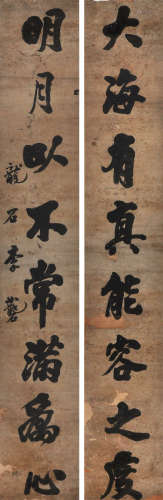 大海有真能容之度
明月以不常滿為心
龍石李